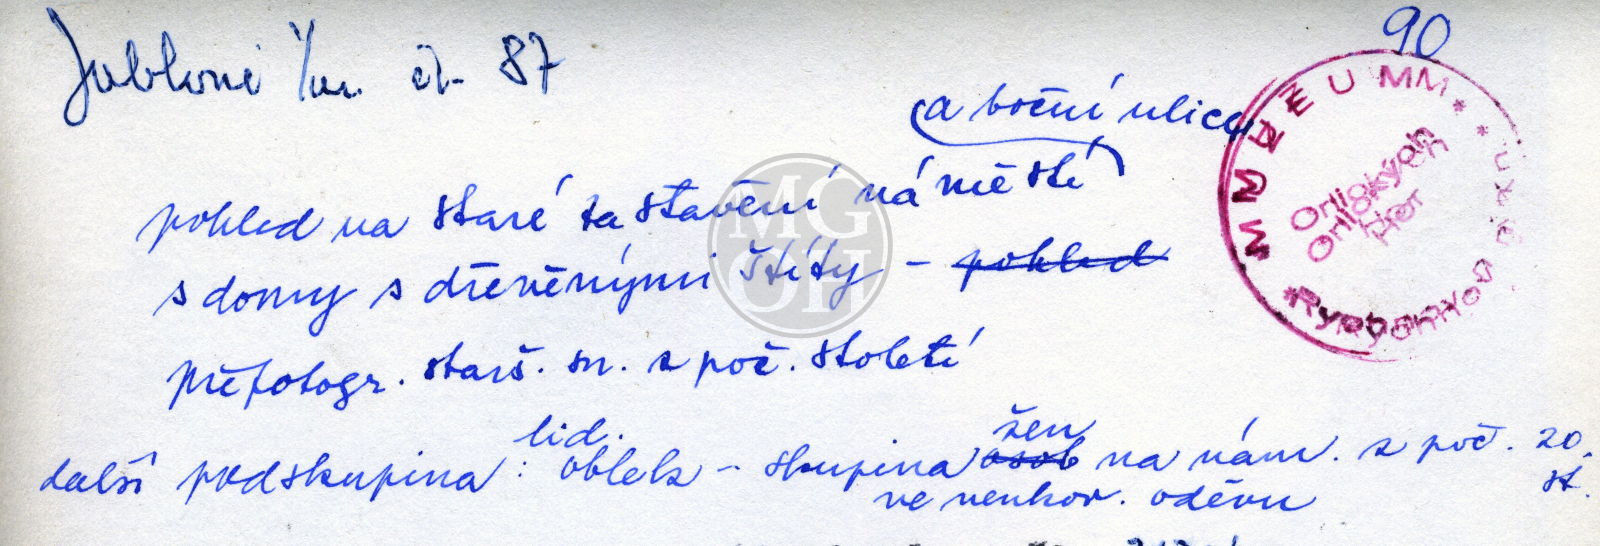 90
Jablonné n/Or. čp. 87
(a boční ulicu)
pohled na staré zastavění náměstí
s domy s dřevěnými štíty – pohled
přefotogr. starš. sn. z poč. století
lid. žen
další podskupina: oblek – skupina osob na nám. z poč. 20. st.
ve venkov. oděvu
MUZEUM
Orlických hor
Rychnov
MG
OH